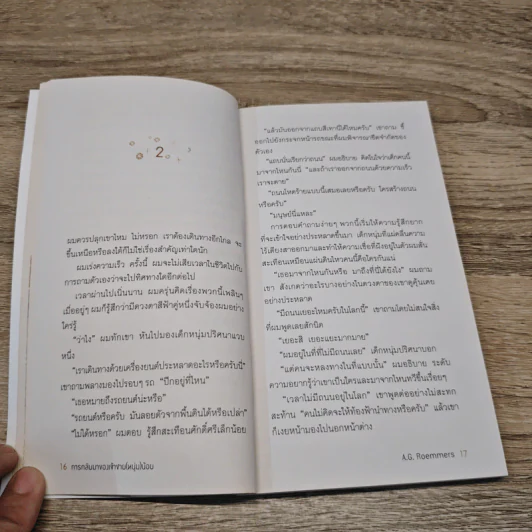 2
ผมควรปลุกเขาไหม ไม่หรอก เราต้องเดินทางอีกไกล จะ
ขึ้นเหนือหรือลงใต้ก็ไม่ใช่เรื่องสำคัญเท่าใดนัก
ผมเร่งความเร็ว ครั้งนี้ ผมจะไม่เสียเวลาในชีวิตไปกับ
การถามตัวเองว่าจะไปทิศทางใดอีกต่อไป
เวลาผ่านไปเนิ่นนาน ผมครุ่นคิดเรื่องพวกนี้เพลินๆ
เมื่ออยู่ๆ ผมก็รู้สึกว่ามีดวงตาสีฟ้าคู่หนึ่งจับจ้องผมอย่าง
ใคร่รู้
"ว่าไง" ผมทักเขา หันไปมองเด็กหนุ่มปริศนาแวบ
หนึ่ง
"เราเดินทางด้วยเครื่องยนต์ประหลาดอะไรหรือครับนี่"
เขาถามพลางมองไปรอบๆ รถ "ปีกอยู่ที่ไหน"
"เธอหมายถึงรถยนต์น่ะหรือ"
"รถยนต์หรือครับ มันลอยตัวจากพื้นดินได้หรือเปล่า"
"ไม่ได้หรอก" ผมตอบ รู้สึกสะเทือนศักดิ์ศรีเล็กน้อย
16 การกลับมาของเจ้าชาย(หนุ่ม)น้อย
"แล้วมันออกจากแถบสีเทานี้ได้ไหมครับ" เขาถาม ชี้
ออกไปยังกระจกหน้ารถขณะที่ผมพิจารณาขีดจำกัดของ
ตัวเอง
"แถบนั่นเรียกว่าถนน" ผมอธิบาย คิดในใจว่าเด็กคนนี้
มาจากไหนกันนี่ "และถ้าเราออกจากถนนด้วยความเร็ว
เราจะตาย"
"ถนนโหดร้ายแบบนี้เสมอเลยหรือครับ ใครสร้างถนน
หรือครับ"
"มนุษย์นี่แหละ"
การตอบคำถามง่ายๆ พวกนี้เริ่มให้ความรู้สึกยาก
ที่จะเข้าใจอย่างประหลาดขึ้นมา เด็กหนุ่มที่แผ่คลื่นความ
ไร้เดียงสาออกมาและทำให้ความเชื่อที่มีอยู่ในตัวผมสั่น
สะเทือนเหมือนแผ่นดินไหวคนนี้คือใครกันแน่
"เธอมาจากไหนกันหรือ มาถึงที่นี่ได้ยังไง" ผมถาม
เขา สังเกตว่าอะไรบางอย่างในดวงตาของเขาดูคุ้นเคย
อย่างประหลาด
"มีถนนเยอะไหมครับในโลกนี้" เขาถามโดยไม่สนใจสิ่ง
ที่ผมพูดเลยสักนิด
"เยอะสิ เยอะแยะมากมาย"
"ผมอยู่ในที่ที่ไม่มีถนนเลย" เด็กหนุ่มปริศนาบอก
"แต่คนจะหลงทางในที่แบบนั้น" ผมอธิบาย ระดับ
ความอยากรู้ว่าเขาเป็นใครและมาจากไหนทวีขึ้นเรื่อยๆ
"เวลาไม่มีถนนอยู่ในโลก" เขาพูดต่ออย่างไม่สะทก
สะท้าน "คนไม่คิดจะให้ท้องฟ้านำทางหรือครับ" แล้วเขา
ก็เงยหน้ามองไปนอกหน้าต่าง
A.G. Roemmers 17